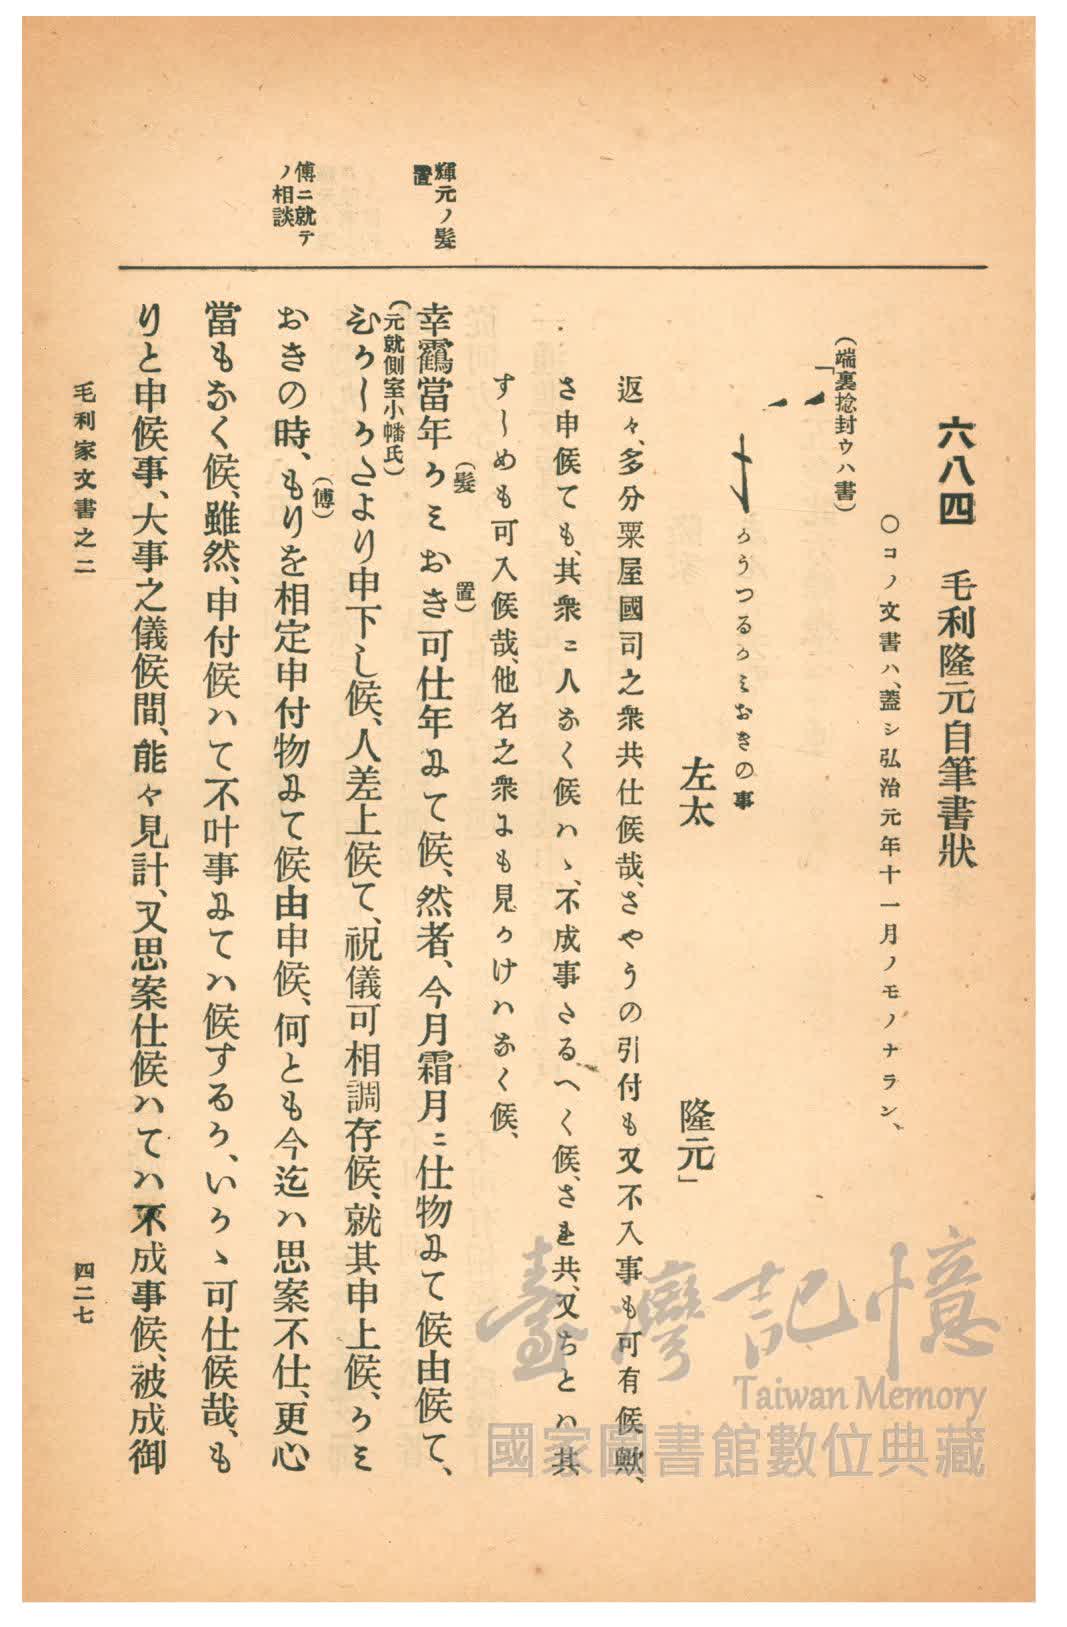 輝元ノ髪
置
傅ニ就テ
ノ相談
六八四　毛利隆元自筆書狀
○コノ文書ハ、蓋シ弘治元年十一月ノモノナラン、
(端裏捻封ウハ書)
「
かうつるかミおきの事
左太　隆元」
返々、多分粟屋國司之衆共仕候哉、さやうの引付も又不入事も可有候歟、
さ申候ても、其衆ニ人なく候ハヽ、不成事たるへく候、され共、又ちとハ其
すしめも可入候哉、他名之衆にも見かけハなく候、
(髪)　(置)
幸鶴當年かミおき可仕年にて候、然者、今月霜月ニ仕物にて候由候て、
(元就側室小幡氏)
ひかしかたより申下し候、人差上候て、祝儀可相調存候、就其申上候、かミ
(傅)
おきの時、もりを相定申付物にて候由申候、何とも今迄ハ思案不仕、更心
當もなく候、雖然、申付候ハて不叶事にてハ候するか、いかゝ可仕候哉、も
りと申候事、大事之儀候間、能々見計、又思案仕候ハてハ不成事候、被成御
毛利家文書之二　四二七
臺灣記憶
Taiwan Memory
國家圖書館數位典藏